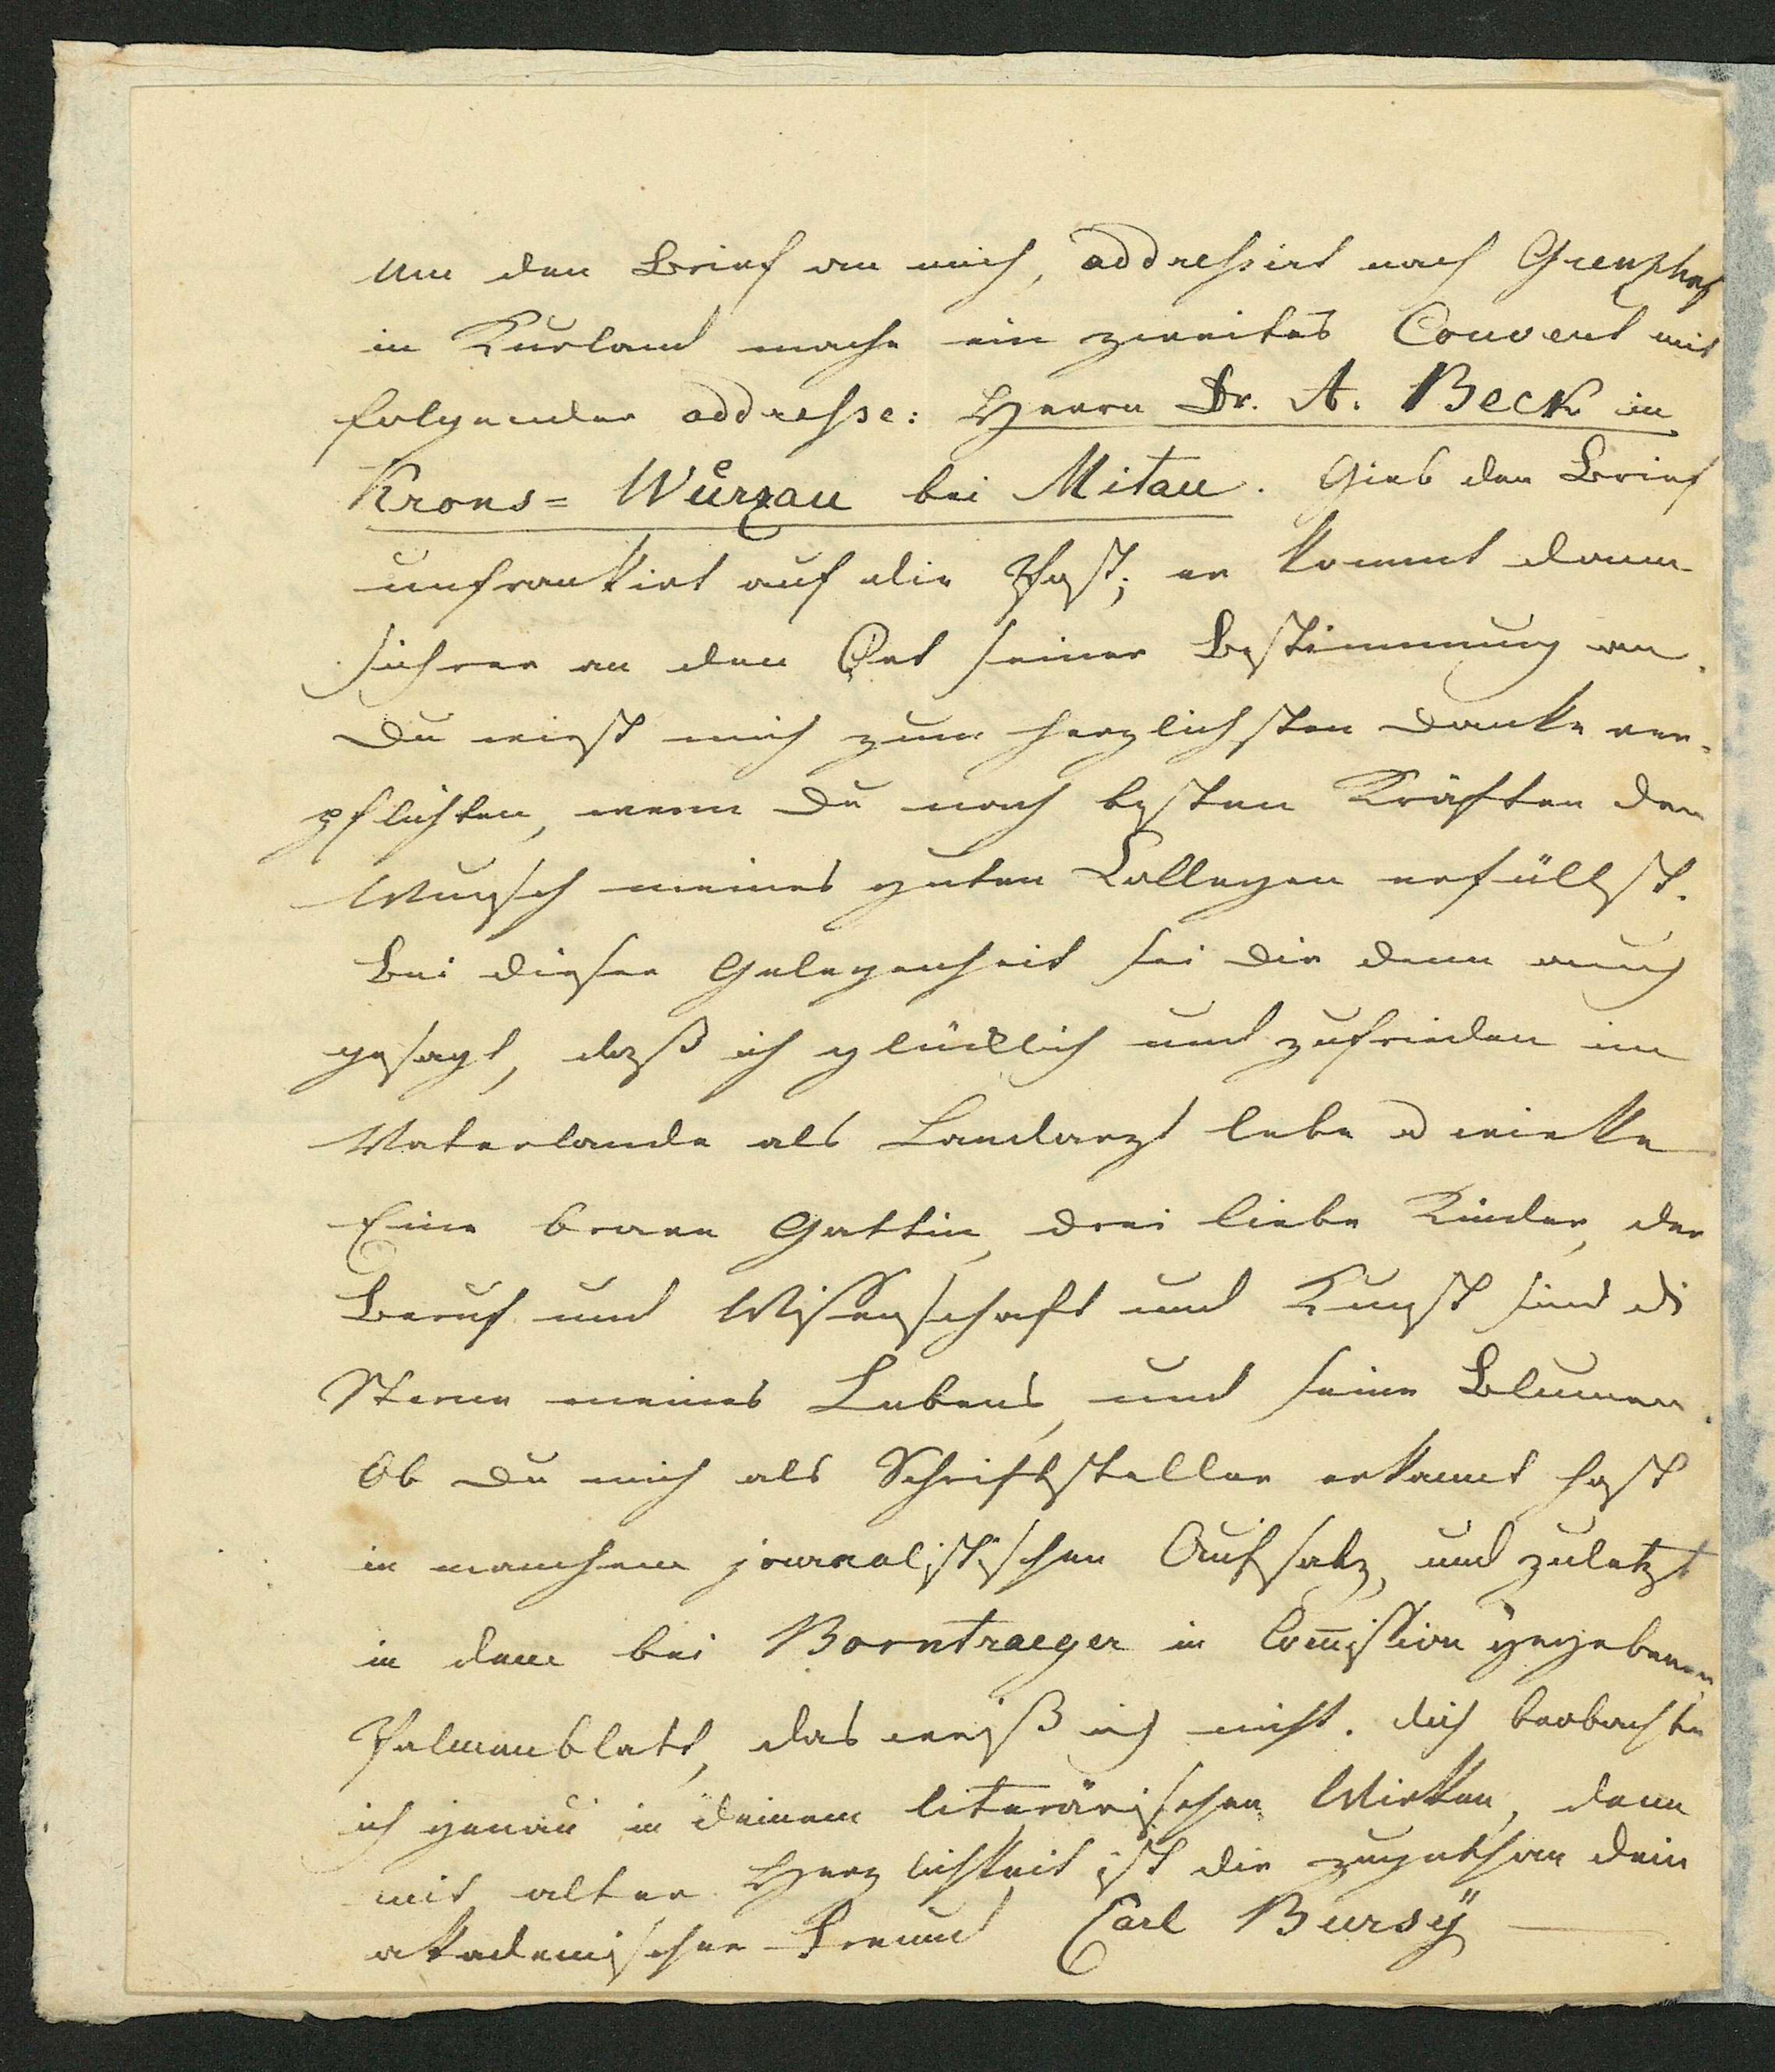 Um den Brief an mich, addressirt nach Grenzhof
in Kurland mache ein zweites Couvert mit
folgender addresse: Herrn Dr. A. Beck in
Krons= Würzau bei Mitau. Gieb den Brief
unfrankirt auf die Post; er kommt dann
sichrer an den Ort seiner Bestimmung an.
Du wirst mich zum herzlichsten Danke ver-
pflichten, wenn Du nach besten Kräften den
Wunsch meines guten Collegen erfüllst.
Bei dieser Gelegenheit sei Dir denn auch
gesagt, daß ich glücklich und zufrieden im
Vaterlande als Landarzt lebe u wirke
Eine brave Gattin, drei liebe Kinder, der
Beruf und Wissenschaft und Kunst sind di
Sterne meines Lebens, und seine Blumen.
Ob Du mich als Schriftsteller erkannt hast
in manchem journalistischen Aufsatz, und zuletzt
in dem bei Borntraeger in Com̄ission gegebenen
Palmenblatt, das weiß ich nicht. Dich beobachte
ich genau in Deinem literärischen Wirken, denn
mit alter Herzlichkeit ist Dir zugethan Dein
akademischer Freund Carl Bursÿ